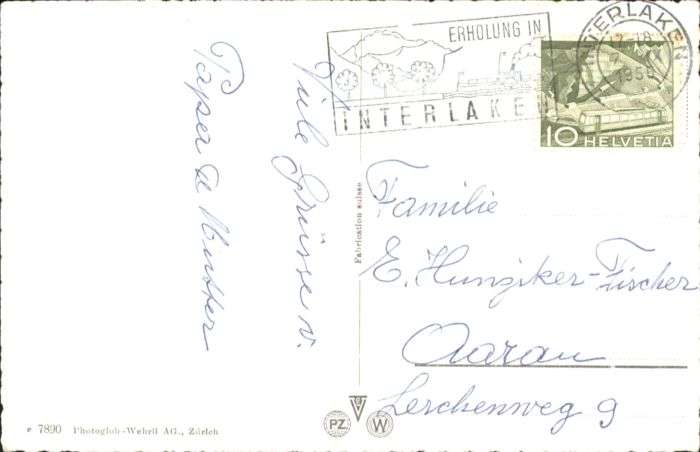 Viele Grüsse v.
Papa u Mutter
ERHOLUNG IN
INTERLAKEN
INTERLAKEN
-18
1956
10 HELVETIA
Familie
E. Hunziker-Fischer
Aarau
Lerchenweg 9
Fabrication suisse
7890 Photoglob-Wehrli AG., Zürich
PZ
W